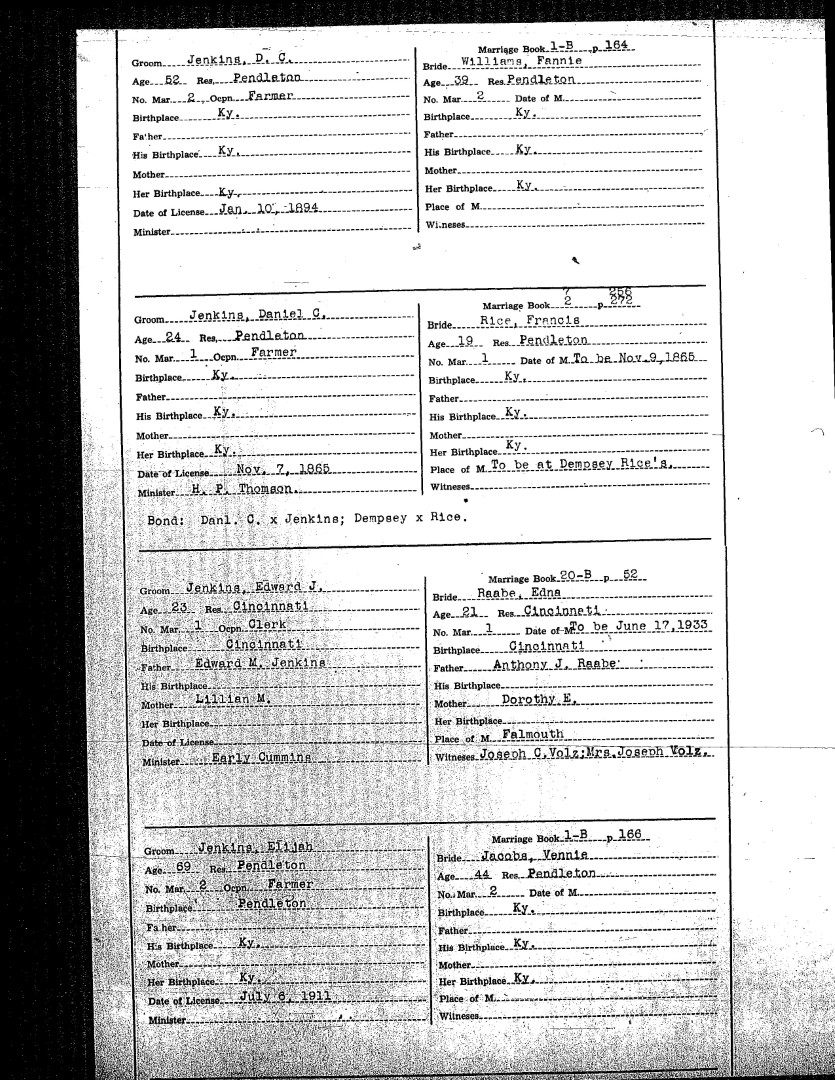 Marriage Book 1-B p 164
Groom Jenkins, D. C. Bride Williams, Fannie
Age 52 Res. Pendleton Age 39 Res. Pendleton
No. Mar. 2 Ocpn. Farmer No. Mar. 2 Date of M.
Birthplace Ky. Birthplace Ky.
Father Father
His Birthplace Ky. His Birthplace Ky.
Mother Mother
Her Birthplace Ky. Her Birthplace Ky.
Date of License Jan. 10, 1894 Place of M.
Minister Witneses
Marriage Book 7 2 p 256 272
Groom Jenkins, Daniel C. Bride Rice, Francis
Age 24 Res. Pendleton Age 19 Res. Pendleton
No. Mar. 1 Ocpn. Farmer No. Mar. 1 Date of M. To be Nov. 9, 1865
Birthplace Ky. Birthplace Ky.
Father Father
His Birthplace Ky. His Birthplace Ky.
Mother Mother
Her Birthplace Ky. Her Birthplace Ky.
Date of License Nov. 7, 1865 Place of M. To be at Dempsey Rice's.
Minister H. P. Thomson. Witneses
Bond: Danl. C. x Jenkins; Dempsey x Rice.
Marriage Book 20-B p. 52
Groom Jenkins, Edward J. Bride Raabe, Edna
Age 23 Res. Cincinnati Age 21 Res. Cincinnati
No. Mar. 1 Ocpn. Clerk No. Mar. 1 Date of M. To be June 17, 1933
Birthplace Cincinnati Birthplace Cincinnati
Father Edward M. Jenkins Father Anthony J. Raabe
His Birthplace His Birthplace
Mother Lillian M. Mother Dorothy E.
Her Birthplace Her Birthplace
Date of License Place of M. Falmouth
Minister Early Cummins Witneses Joseph C. Volz; Mrs. Joseph Volz.
Marriage Book 1-B p. 166
Groom Jenkins, Elijah Bride Jacobs, Vennie
Age 69 Res. Pendleton Age 44 Res. Pendleton
No. Mar. 2 Ocpn. Farmer No. Mar. 2 Date of M.
Birthplace Pendleton Birthplace Ky.
Father Father
His Birthplace Ky. His Birthplace Ky.
Mother Mother
Her Birthplace Ky. Her Birthplace Ky.
Date of License July 6, 1911 Place of M.
Minister Witneses